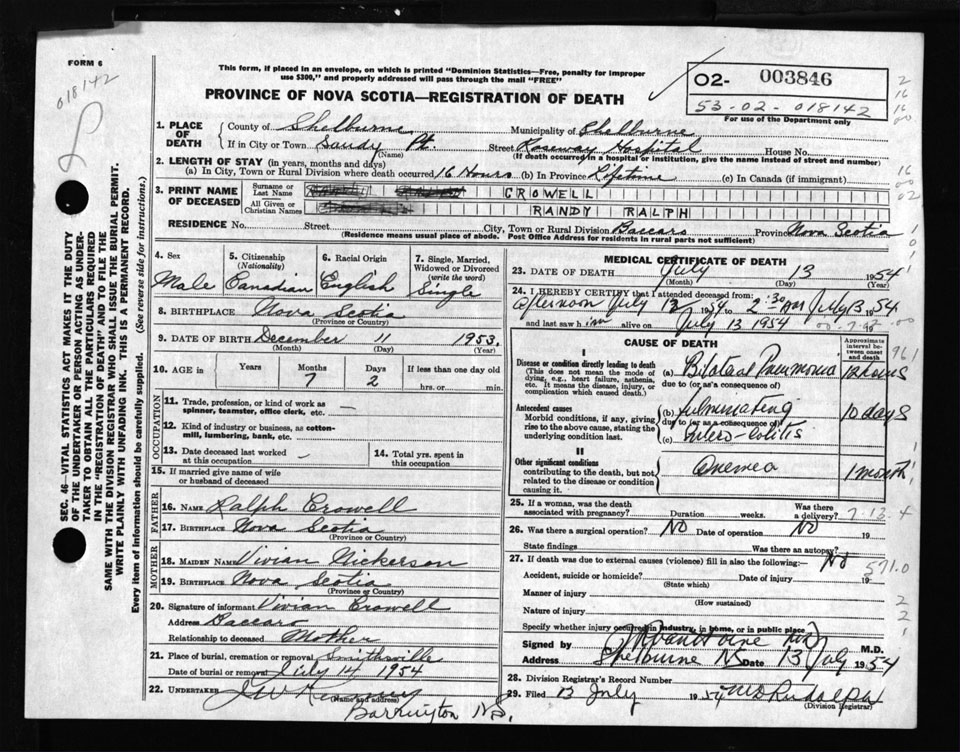 FORM 6
018142
This form, if placed in an envelope, on which is printed "Dominion Statistics—Free, penalty for improper
use $300," and properly addressed will pass through the mail "FREE"
PROVINCE OF NOVA SCOTIA—REGISTRATION OF DEATH
02- 003846
53-02-018142
For use of the Department only
1. PLACE OF DEATH
County of Shelburne Municipality of Shelburne
If in City or Town Sandy Pt. Street Roseway Hospital House No.
(Name) (If death occurred in a hospital or institution, give the name instead of street and number)
2. LENGTH OF STAY (in years, months and days)
(a) In City, Town or Rural Division where death occurred 16 Hours (b) In Province Lifetime (c) In Canada (if immigrant)
3. PRINT NAME OF DECEASED
Surname or Last Name CROWELL
All Given or Christian Names RANDY RALPH
RESIDENCE No. Street City, Town or Rural Division Baccaro Province Nova Scotia
(Residence means usual place of abode. Post Office Address for residents in rural parts not sufficient)
SEC. 46—VITAL STATISTICS ACT MAKES IT THE DUTY
OF THE UNDERTAKER OR PERSON ACTING AS UNDER-
TAKER TO OBTAIN ALL THE PARTICULARS REQUIRED
IN THE "REGISTRATION OF DEATH" AND TO FILE THE
SAME WITH THE DIVISION REGISTRAR WHO SHALL ISSUE THE BURIAL PERMIT.
WRITE PLAINLY WITH UNFADING INK. THIS IS A PERMANENT RECORD.
Every item of information should be carefully supplied. (See reverse side for instructions.)
4. Sex 5. Citizenship (Nationality) 6. Racial Origin 7. Single, Married, Widowed or Divorced (write the word)
Male Canadian English Single
8. BIRTHPLACE Nova Scotia
(Province or Country)
9. DATE OF BIRTH December 11 1953
(Month) (Day) (Year)
10. AGE in Years Months Days If less than one day old
7 2 hrs. or min.
OCCUPATION
11. Trade, profession, or kind of work as
spinner, teamster, office clerk, etc. —
12. Kind of industry or business, as cotton-
mill, lumbering, bank, etc.
13. Date deceased last worked at this occupation —
14. Total yrs. spent in this occupation
15. If married give name of wife
or husband of deceased
FATHER
16. NAME Ralph Crowell
17. BIRTHPLACE Nova Scotia
(Province or Country)
MOTHER
18. MAIDEN NAME Vivian Nickerson
19. BIRTHPLACE Nova Scotia
(Province or Country)
20. Signature of informant Vivian Crowell
Address Baccaro
Relationship to deceased Mother
21. Place of burial, cremation or removal Smithsville
Date of burial or removal July 14 1954
22. UNDERTAKER
(Name and address)
Barrington N.S.
MEDICAL CERTIFICATE OF DEATH
23. DATE OF DEATH July 13 1954
(Month) (Day) (Year)
24. I HEREBY CERTIFY that I attended deceased from:
afternoon July 12 1954 to 2:30 July 13 1954
and last saw him alive on July 13 1954
CAUSE OF DEATH
Approximate interval between onset and death
I
Disease or condition directly leading to death
(This does not mean the mode of
dying, e.g., heart failure, asthenia,
etc. It means the disease, injury, or
complication which caused death.)
(a) Bilateral Pneumonia 12 hours
due to (or as a consequence of)
Antecedent causes
Morbid conditions, if any, giving
rise to the above cause, stating the
underlying condition last.
(b) fulminating 10 days
due to (or as a consequence of)
(c) Entero-Colitis
II
Other significant conditions
contributing to the death, but not
related to the disease or condition
causing it.
Anemea 1 month
25. If a woman, was the death
associated with pregnancy? Duration weeks. Was there a delivery?
7-13-4
26. Was there a surgical operation? NO Date of operation NO 19
State findings Was there an autopsy?
27. If death was due to external causes (violence) fill in also the following:— No
571.0
Accident, suicide or homicide? Date of injury 19
(State which)
Manner of injury
(How sustained)
Nature of injury
Specify whether injury occurred in industry, in home, or in public place
Signed by M.D.
Address Shelburne NS Date 13 July 1954
28. Division Registrar's Record Number
29. Filed 13 July 1954
(Division Registrar)